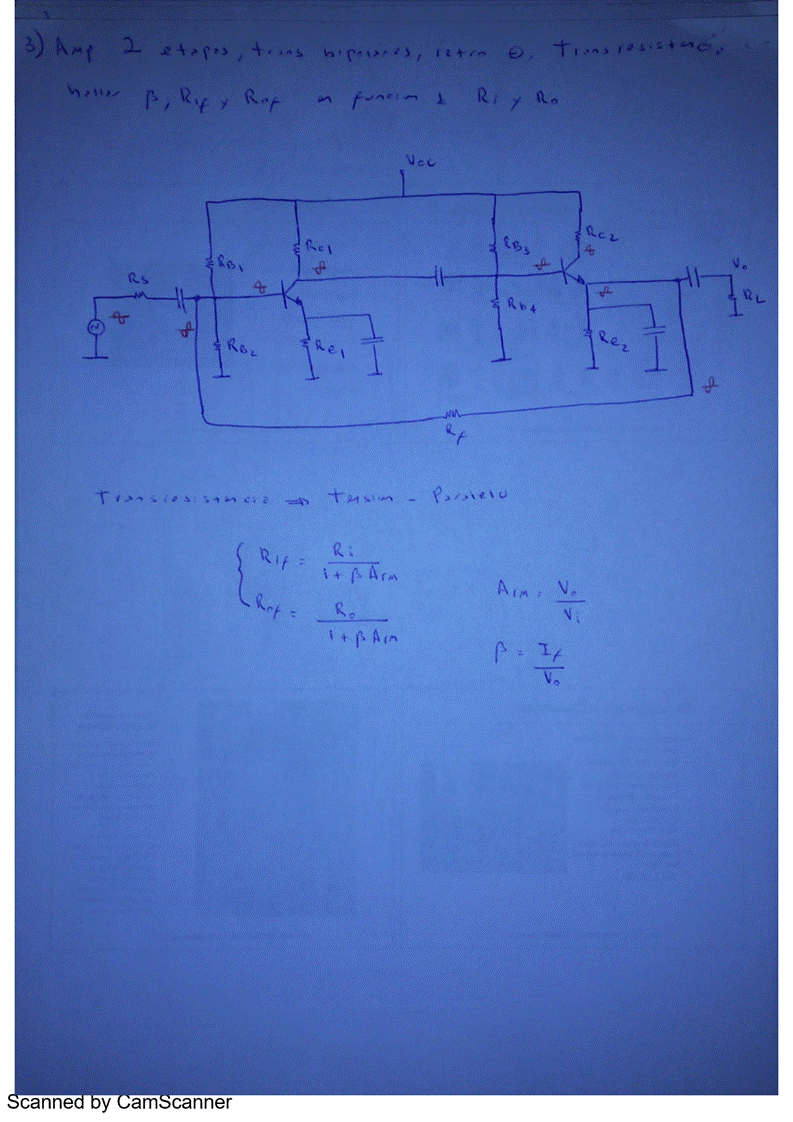 3) Amp 2 etapas, trans bipolares, retro ⊖, Transresistencia
hallar β, Rif y Rof en funcion d Ri y Ro
Vcc
RB1
Rc1
RB3
Rc2
Rs
Vo
RL
RB2
Re1
Rb4
Re2
Rf
Transresistencia ⇒ Tension - Paralelo
Rif = Ri / 1 + β ARM
Rof = Ro / 1 + β ARM
ARM = Vo / Vi
β = If / Vo
Scanned by CamScanner